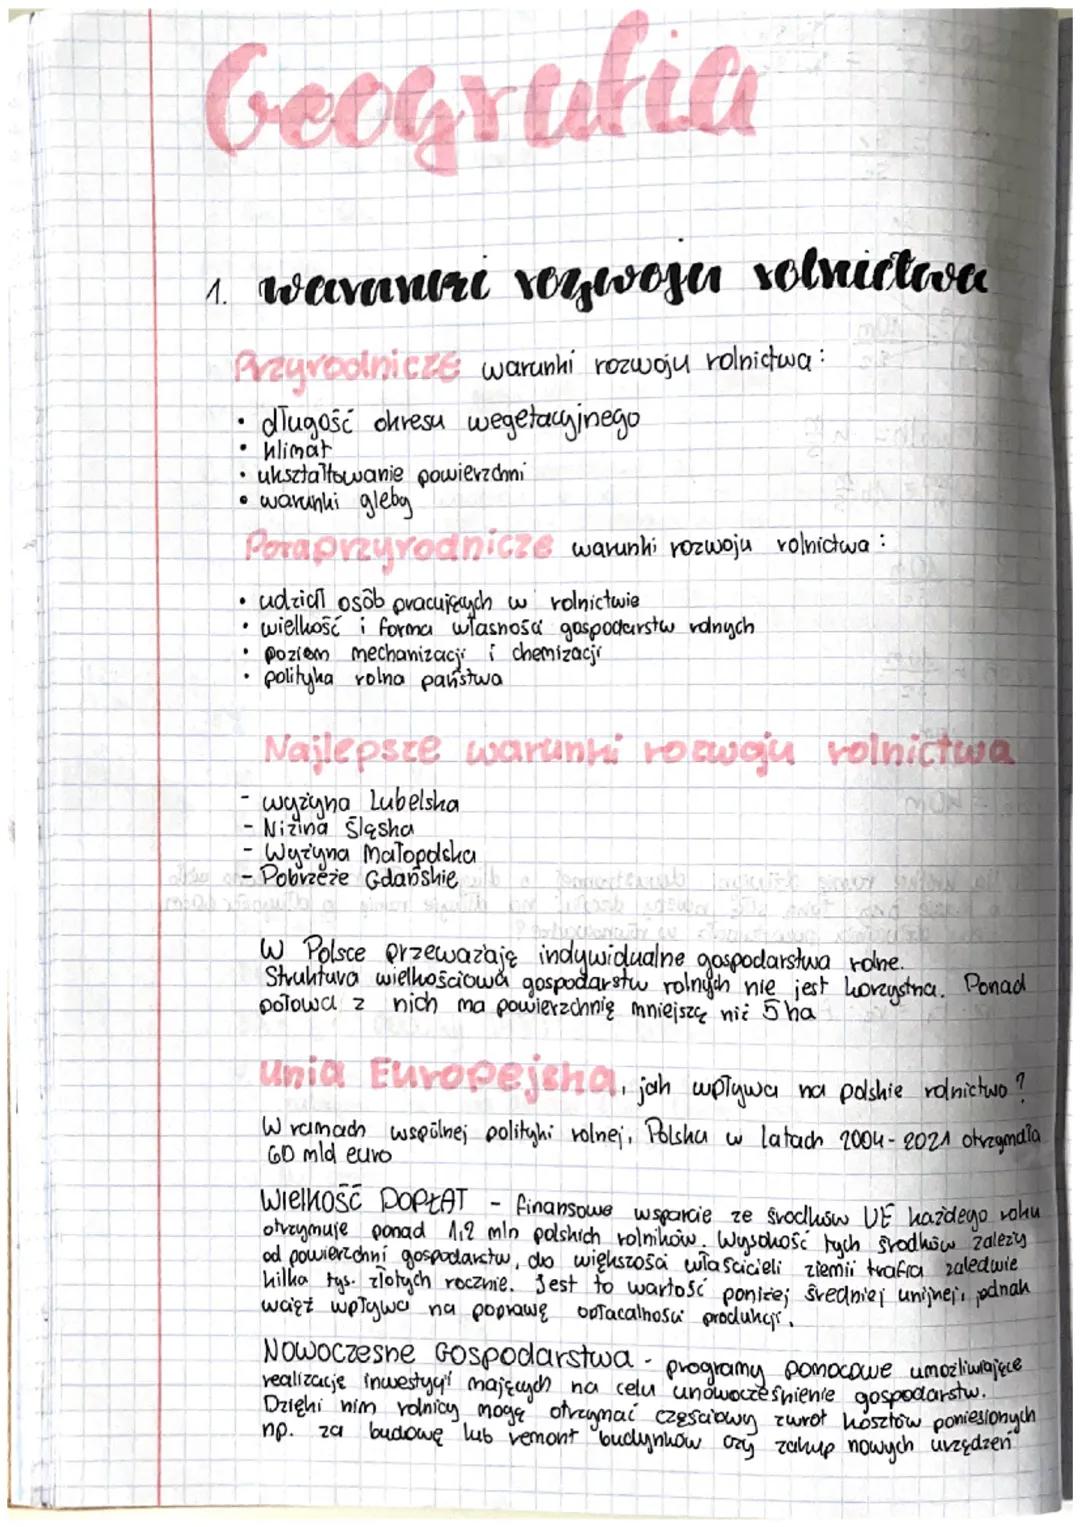 Geografia
1. warunki rozwoju rolnictwa
Przyrodnicze warunki rozwoju rolnictwa:
• długość okresu wegetacyjnego
• klimat
• ukształtowanie powierzchni
• warunki gleby
Pozaprzyrodnicze warunki rozwoju rolnictwa:
• udział osób pracujących w rolnictwie
• wielkość i forma własności gospodarstw rolnych
• poziom mechanizacji i chemizacji
• polityka rolna państwa
Najlepsze warunki rozwoju rolnictwa
- wyżyna Lubelska
- Nizina Śląska
- Wyżyna Małopolska
- Pobrzeże Gdańskie
W Polsce przeważają indywidualne gospodarstwa rolne.
Struktura wielkościowa gospodarstw rolnych nie jest korzystna. Ponad
połowa z nich ma powierzchnię mniejszą niż 5 ha
Unia Europejska, jak wpływa na polskie rolnictwo?
W ramach wspólnej polityki rolnej, Polska w latach 2004-2021 otrzymała
60 mld euro
Wielkość DOPŁAT - finansowe wsparcie ze środków UE każdego roku
otrzymuje ponad 1,2 mln polskich rolników. Wysokość tych środków zależy
od powierzchni gospodarstw, do większości właścicieli ziemii trafia zaledwie
kilka tys. złotych rocznie. Jest to wartość poniżej średniej unijnej, jednak
wciąż wpływa na poprawę opłacalności produkcji.
Nowoczesne Gospodarstwa - programy pomocowe umożliwiające
realizację inwestycji mających na celu unowocześnienie gospodarstw.
Dzięki nim rolnicy mogą otrzymać częściowy zwrot kosztów poniesionych
np. za budowę lub remont budynków czy zakup nowych urządzeń